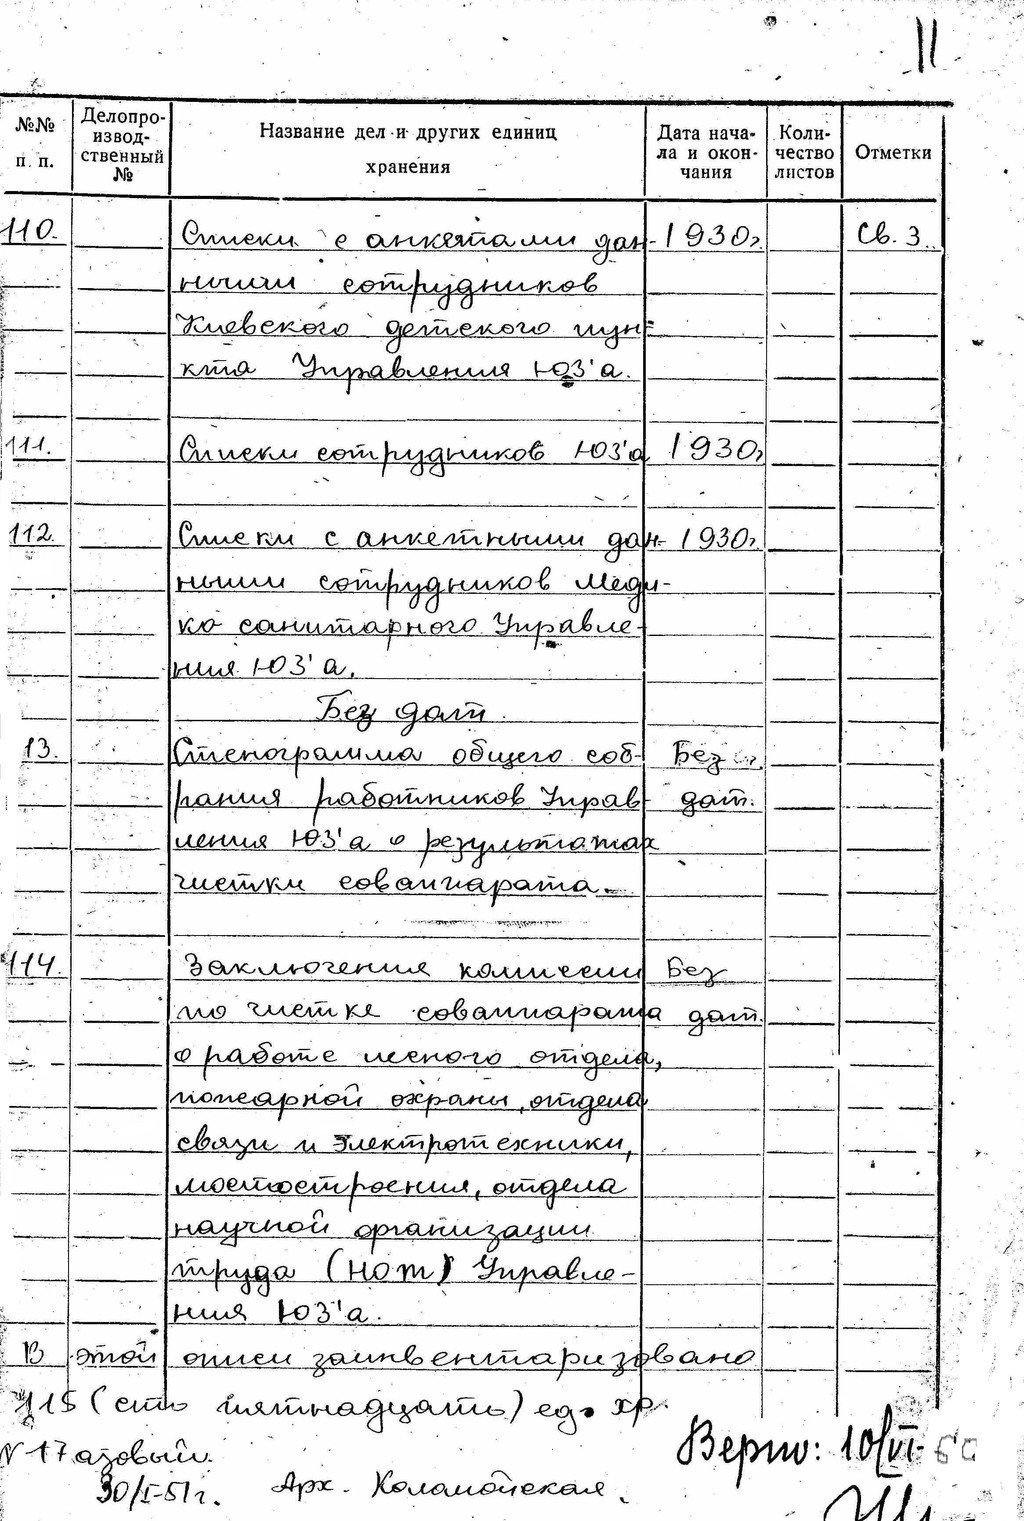 11
№№ п. п. Делопроизвод-ственный № Название дел и других единиц хранения Дата нача-ла и окон-чания Коли-чество листов Отметки
110. Списки с анкетами дан- 1930г. Св. 3.
ными сотрудников
Киевского детского пун-
кта Управления ЮЗ'а.
111. Списки сотрудников ЮЗ'а 1930г
112. Списки с анкетными дан- 1930г.
ными сотрудников Меди-
ко санитарного Управле-
ния ЮЗ'а.
Без дат
13. Стенограмма общего соб- Без
рания работников Управ- дат.
ления ЮЗ'а о результатах
чистки совапарата.
114. Заключения комиссии Без
по чистке совапарата дат.
о работе лесного отдела,
пожарной охраны, отдела
связи и электротехники,
мостостроения, отдела
научной организации
труда (НОТ) Управле-
ния ЮЗ'а.
В этой описи заинвентаризовано
115 (сто пятнадцать) ед. хр.
N 17 азовый.
30/I-51г. Арх. Коломойская.
Верно: 10/VI-